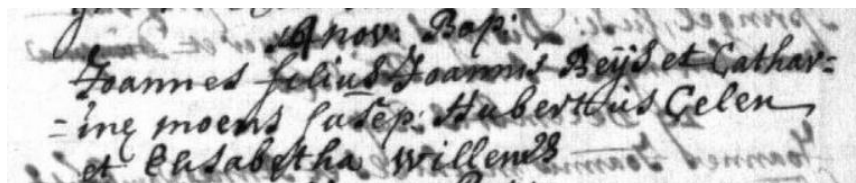 19 nov: Bapi:
Joannes filius Joannis Beijs et Cathar=
=inę moens susep: Hubertus Gelen
et Elisabetha Willems